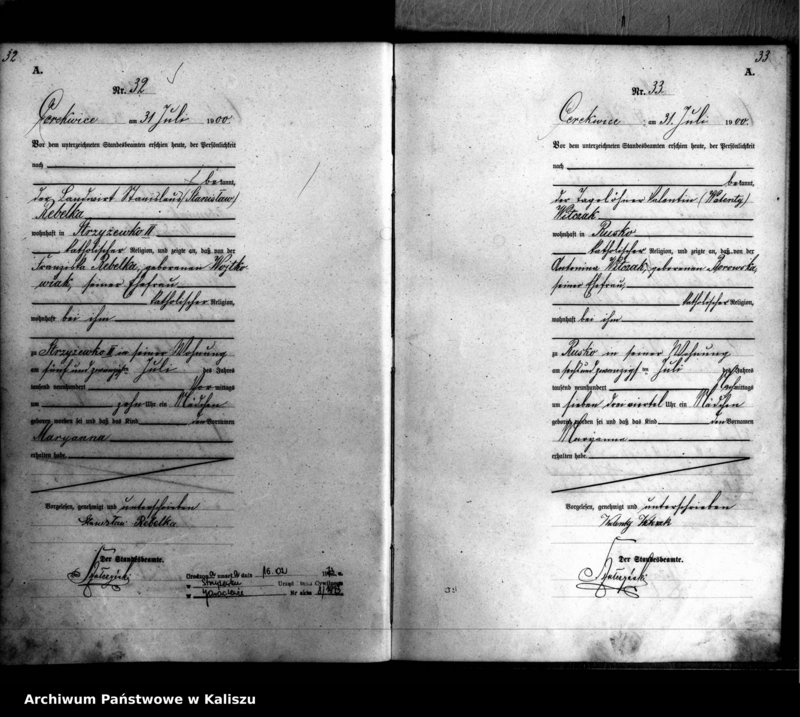 32
A.
Nr. 32
Cerekwice am 31 Juli 1900.
Vor dem unterzeichneten Standesbeamten erschien heute, der Persönlichkeit
nach
bekannt,
der Landwirt Stanislaus (Stanisław)
Rebelka
wohnhaft in Strzyżewko II
katholischer Religion, und zeigte an, daß von der
Franziska Rebelka, geborenen Wojtko
wiak, seiner Ehefrau
katholischer Religion,
wohnhaft bei ihm
zu Strzyżewko II in seiner Wohnung
am fünf und zwanzigsten Juli des Jahres
tausend neunhundert Vormittags
um zehn Uhr ein Mädchen
geboren worden sei und daß das Kind den Vornamen
Maryanna
erhalten habe.
Vorgelesen, genehmigt und unterschrieben
Stanisław Rebelka
Der Standesbeamte.
16.02
33
A.
Nr. 33
Cerekwice am 31. Juli 1900.
Vor dem unterzeichneten Standesbeamten erschien heute, der Persönlichkeit
nach
bekannt,
der Tagelöhner Valentin (Walenty)
Witczak
wohnhaft in Rusko
katholischer Religion, und zeigte an, daß von der
Antonina Witczak, geborenen
seiner Ehefrau,
katholischer Religion,
wohnhaft bei ihm
zu Rusko in seiner Wohnung
am sechs und zwanzigsten Juli des Jahres
tausend neunhundert mittags
um sieben drei viertel Uhr ein Mädchen
geboren worden sei und daß das Kind den Vornamen
Maryanna
erhalten habe.
Vorgelesen, genehmigt und unterschrieben
Walenty Witczak
Der Standesbeamte.
Archiwum Państwowe w Kaliszu